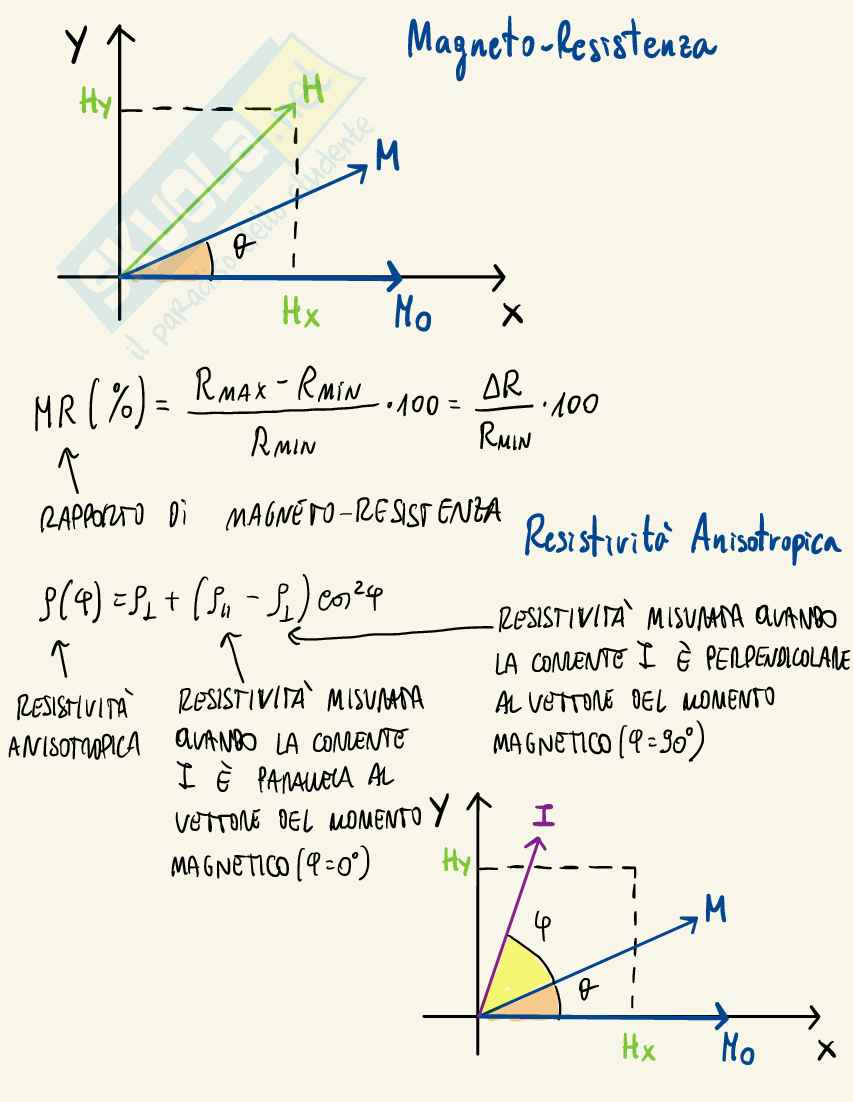 Magneto-Resistenza
Y
Hy
H
M
θ
Hx
M0
x
SKUOLA.net
il paradiso dello studente
MR(%) = (RMAX - RMIN)/RMIN · 100 = ΔR/RMIN · 100
RAPPORTO DI MAGNETO-RESISTENZA
Resistività Anisotropica
ρ(φ) = ρ⊥ + (ρ|| - ρ⊥) cos²φ
RESISTIVITÀ MISURATA QUANDO
LA CORRENTE I È PERPENDICOLARE
AL VETTORE DEL MOMENTO
MAGNETICO (φ=90°)
RESISTIVITÀ
ANISOTROPICA
RESISTIVITÀ MISURATA
QUANDO LA CORRENTE
I È PARALLELA AL
VETTORE DEL MOMENTO
MAGNETICO (φ=0°)
Y
I
Hy
φ
M
θ
Hx
M0
x